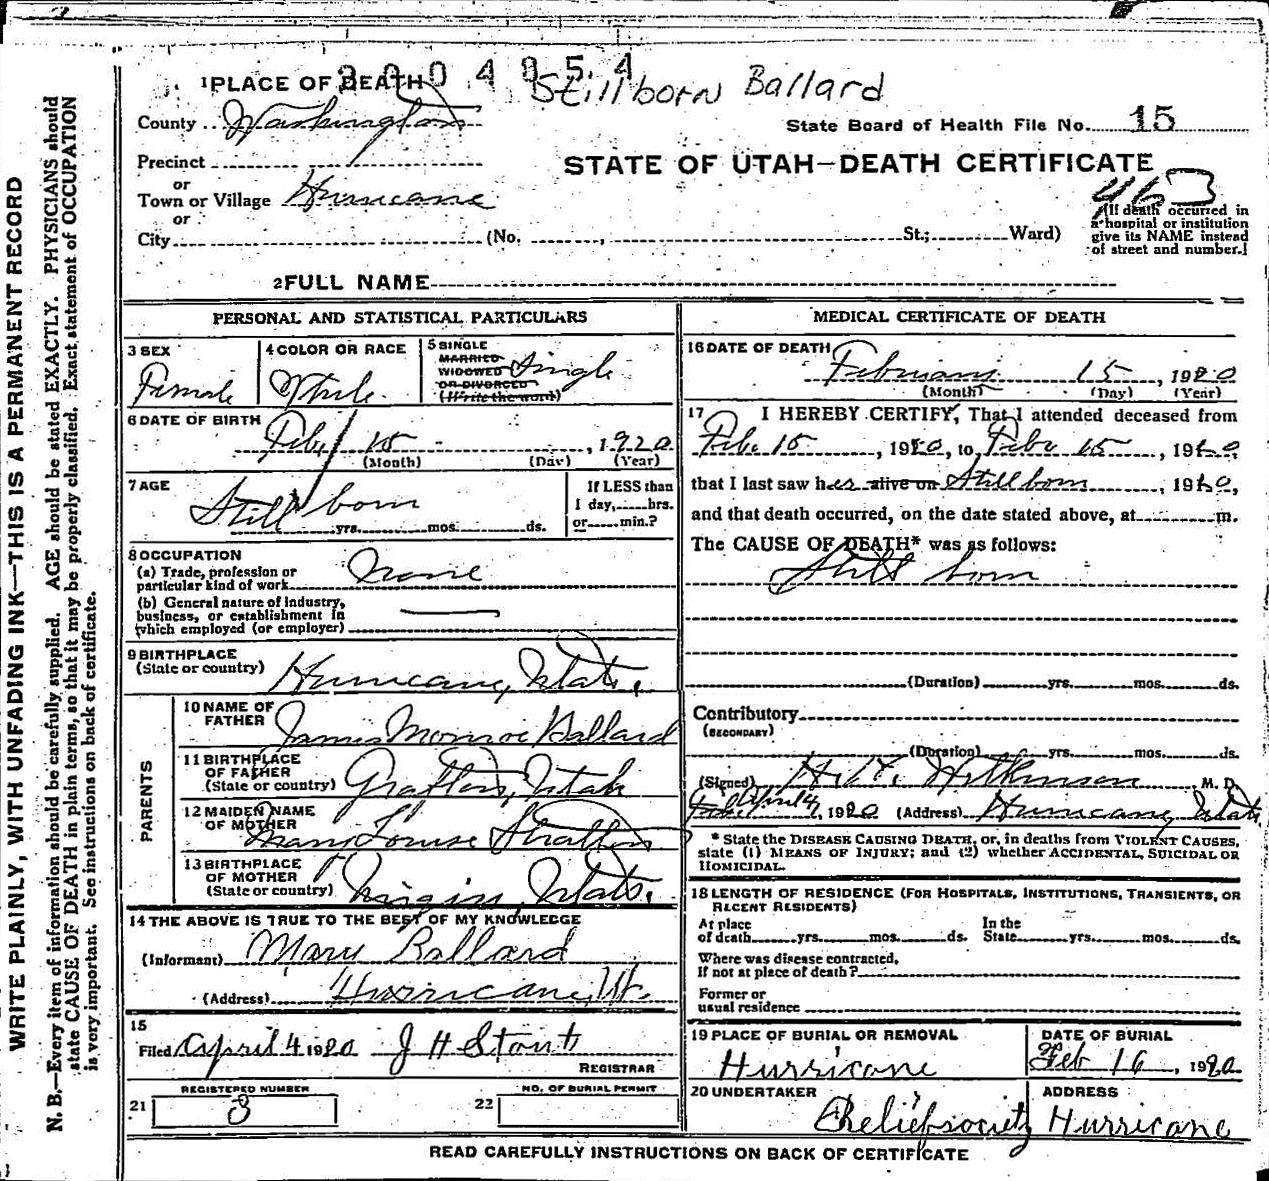 3004054
Stillborn Ballard
1 PLACE OF DEATH
County Washington
State Board of Health File No. 15
Precinct
STATE OF UTAH—DEATH CERTIFICATE
or
Town or Village Hurricane
463
or
City (No. , St.; Ward)
(If death occurred in
a hospital or institution
give its NAME instead
of street and number.)
2 FULL NAME
PERSONAL AND STATISTICAL PARTICULARS
3 SEX
Female
4 COLOR OR RACE
White
5 SINGLE
MARRIED
WIDOWED
OR DIVORCED
(Write the word)
Single
6 DATE OF BIRTH
Feb. 15 , 1920
(Month) (Day) (Year)
7 AGE
Still born
yrs. mos. ds.
If LESS than
1 day, hrs.
or min.?
8 OCCUPATION
(a) Trade, profession or
particular kind of work None
(b) General nature of industry,
business, or establishment in
which employed (or employer) —
9 BIRTHPLACE
(State or country) Hurricane, Utah.
PARENTS
10 NAME OF
FATHER James Monroe Ballard
11 BIRTHPLACE
OF FATHER
(State or country) Grafton, Utah
12 MAIDEN NAME
OF MOTHER Mary Louise Stratton
13 BIRTHPLACE
OF MOTHER
(State or country) Virgin, Utah.
14 THE ABOVE IS TRUE TO THE BEST OF MY KNOWLEDGE
(Informant) Mary Ballard
(Address) Hurricane, Ut.
15
Filed April 4 1920 J H Stout
REGISTRAR
REGISTERED NUMBER
21 3
NO. OF BURIAL PERMIT
22
MEDICAL CERTIFICATE OF DEATH
16 DATE OF DEATH
February 15 , 1920
(Month) (Day) (Year)
17 I HEREBY CERTIFY, That I attended deceased from
Feb. 15 , 1920, to Feb. 15 , 1920
that I last saw her alive on Still born , 1920,
and that death occurred, on the date stated above, at m.
The CAUSE OF DEATH* was as follows:
Still born
(Duration) yrs. mos. ds.
Contributory
(SECONDARY)
(Duration) yrs. mos. ds.
(Signed) Wilkinson M. D.
April 4, 1920 (Address) Hurricane, Utah.
* State the DISEASE CAUSING DEATH, or, in deaths from VIOLENT CAUSES,
state (1) MEANS OF INJURY; and (2) whether ACCIDENTAL, SUICIDAL OR
HOMICIDAL.
18 LENGTH OF RESIDENCE (FOR HOSPITALS, INSTITUTIONS, TRANSIENTS, OR
RECENT RESIDENTS)
At place
of death yrs. mos. ds.
In the
State yrs. mos. ds.
Where was disease contracted,
If not at place of death?
Former or
usual residence
19 PLACE OF BURIAL OR REMOVAL
Hurricane
DATE OF BURIAL
Feb 16 , 1920
20 UNDERTAKER
Relief society
ADDRESS
Hurricane
READ CAREFULLY INSTRUCTIONS ON BACK OF CERTIFICATE
WRITE PLAINLY, WITH UNFADING INK—THIS IS A PERMANENT RECORD
N. B.—Every item of information should be carefully supplied. AGE should be stated EXACTLY. PHYSICIANS should
state CAUSE OF DEATH in plain terms, so that it may be properly classified. Exact statement of OCCUPATION
is very important. See instructions on back of certificate.